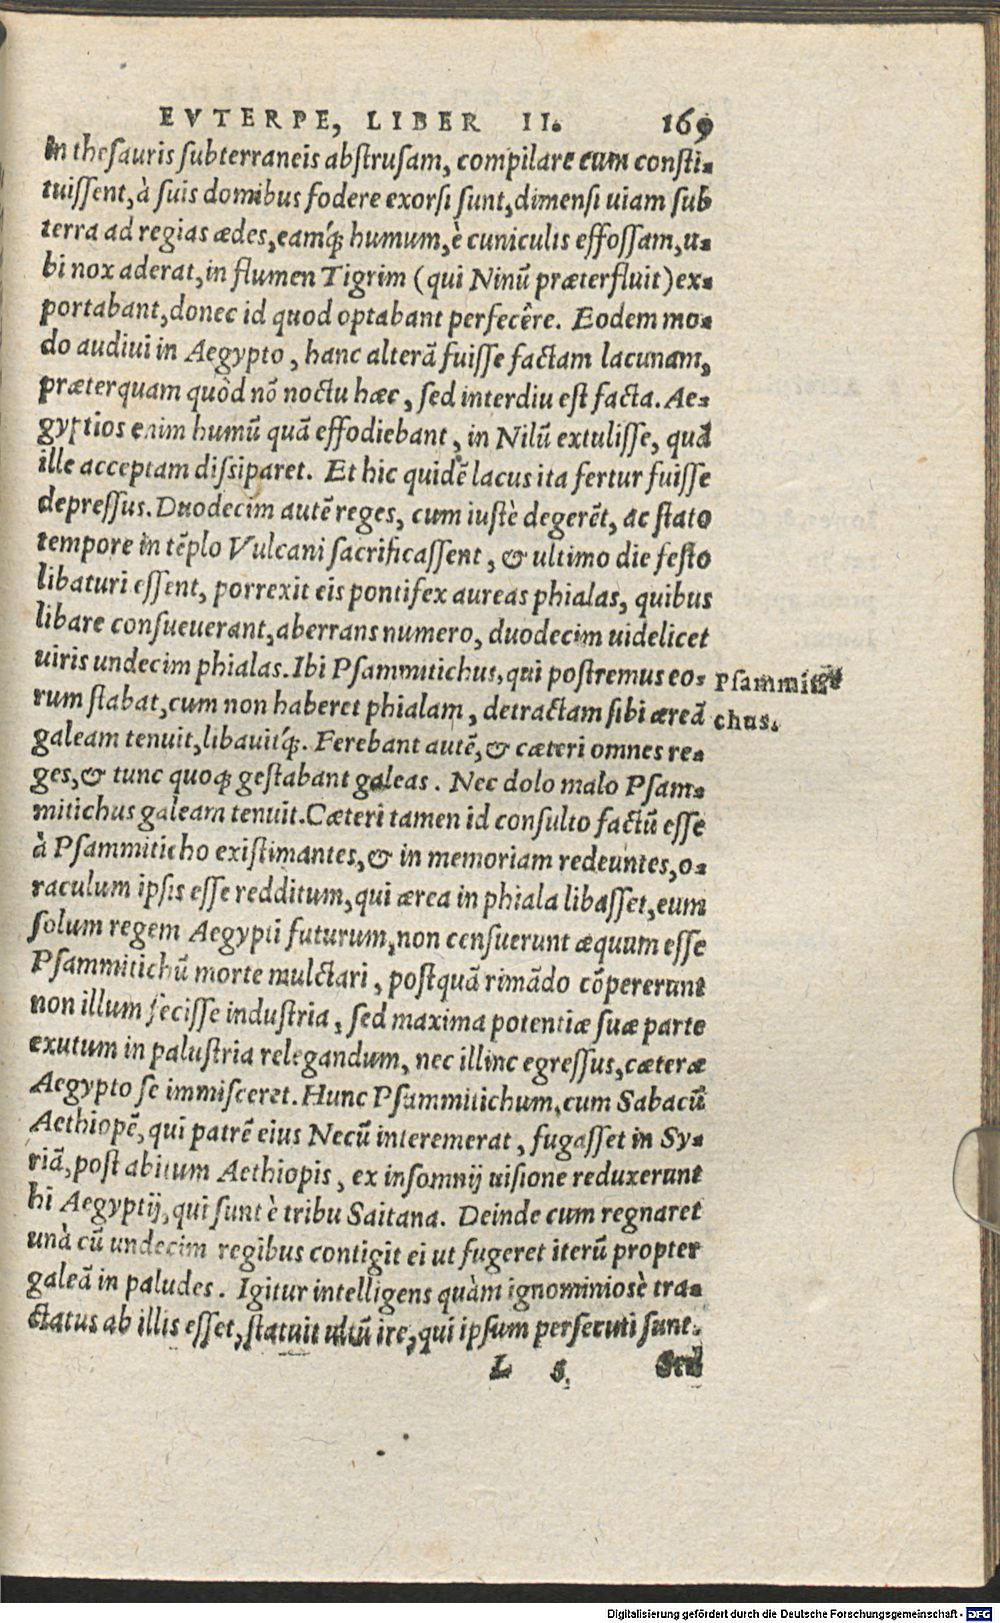 EVTERPE, LIBER II. 169
in thesauris subterraneis abstrusam, compilare cum consti-
tuissent, à suis domibus fodere exorsi sunt, dimensi uiam sub
terra ad regias ædes, eamq́; humum, è cuniculis effossam, u-
bi nox aderat, in flumen Tigrim (qui Ninũ præterfluit) ex-
portabant, donec id quod optabant perfecêre. Eodem mo-
do audiui in Aegypto, hanc alterã fuisse factam lacunam,
præterquam quòd nõ noctu hæc, sed interdiu est facta. Ae-
gyptios enim humũ quã effodiebant, in Nilũ extulisse, quã
ille acceptam dissiparet. Et hic quidẽ lacus ita fertur fuisse
depressus. Duodecim autẽ reges, cum iustè degerẽt, ac stato
tempore in tẽplo Vulcani sacrificassent, & ultimo die festo
libaturi essent, porrexit eis pontifex aureas phialas, quibus
libare consueuerant, aberrans numero, duodecim uidelicet
uiris undecim phialas. Ibi Psammitichus, qui postremus eo-
rum stabat, cum non haberet phialam, detractam sibi æreã
galeam tenuit, libauitq́;. Ferebant autẽ, & cæteri omnes re-
ges, & tunc quoq; gestabant galeas. Nec dolo malo Psam-
mitichus galeam tenuit. Cæteri tamen id consulto factũ esse
à Psammiticho existimantes, & in memoriam redeuntes, o-
raculum ipsis esse redditum, qui ærea in phiala libasset, eum
solum regem Aegypti futurum, non censuerunt æquum esse
Psammitichũ morte mulctari, postquã rimãdo cõpererunt
non illum fecisse industria, sed maxima potentiæ suæ parte
exutum in palustria relegandum, nec illinc egressus, cæteræ
Aegypto se immisceret. Hunc Psammitichum, cum Sabacũ
Aethiopẽ, qui patrẽ eius Necũ interemerat, fugasset in Sy-
riã, post abitum Aethiopis, ex insomnij uisione reduxerunt
hi Aegyptij, qui sunt è tribu Saitana. Deinde cum regnaret
unà cũ undecim regibus contigit ei ut fugeret iterũ propter
galeã in paludes. Igitur intelligens quàm ignominiosè tra-
ctatus ab illis esset, statuit ultũ ire, qui ipsum persecuti sunt.
L 5 Sed
Psammiti-
chus.
Digitalisierung gefördert durch die Deutsche Forschungsgemeinschaft - DFG